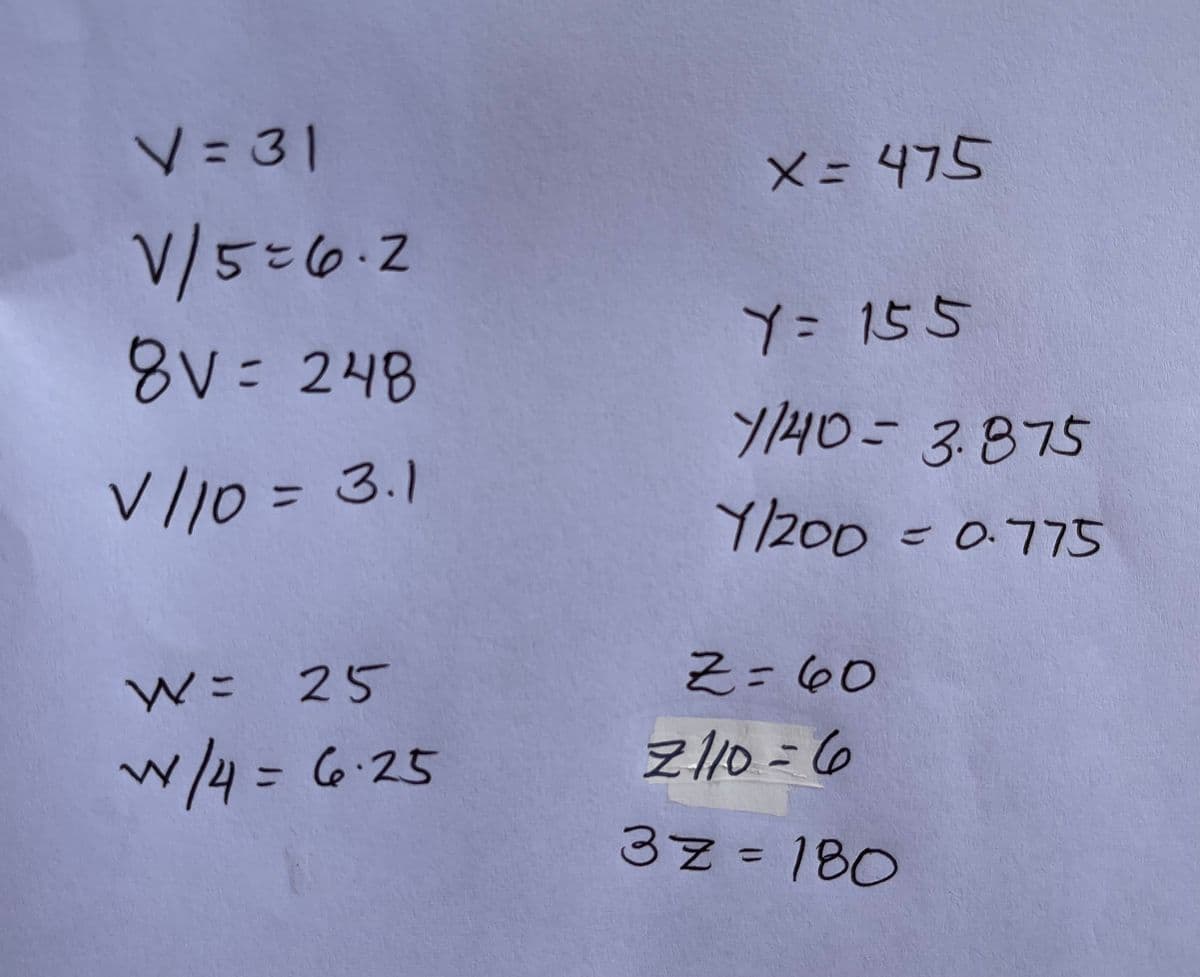 V = 31
V/5 = 6.2
8V = 248
V/10 = 3.1
W = 25
W/4 = 6.25
X = 475
Y = 155
Y/40 = 3.875
Y/200 = 0.775
Z = 60
Z/10 = 6
3Z = 180